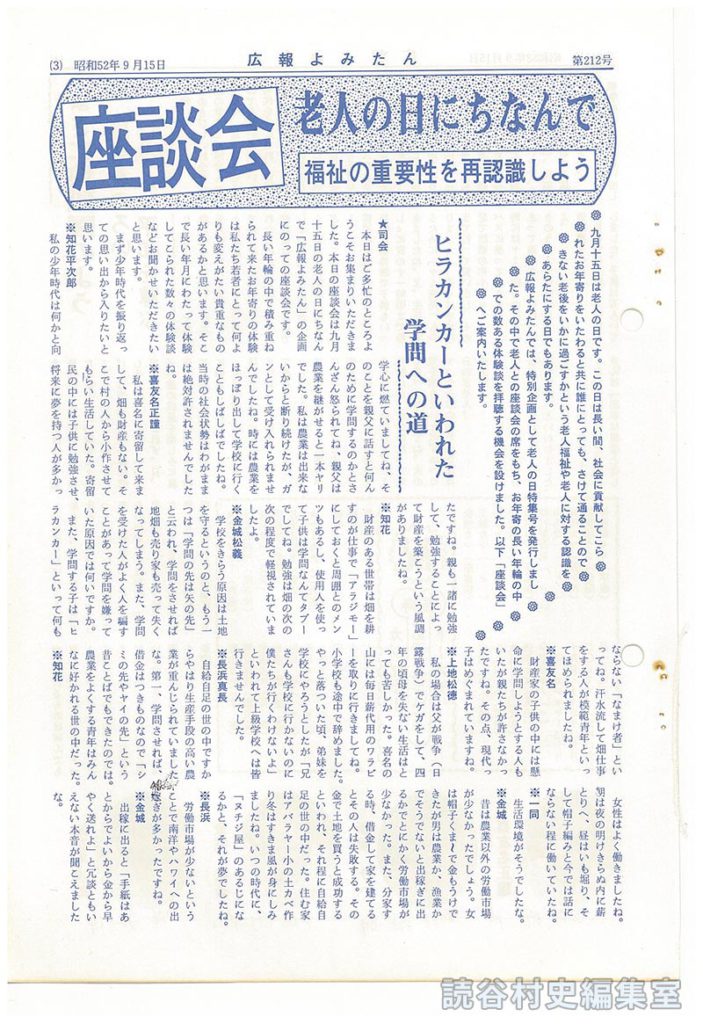 (3) 昭和52年9月15日
広報よみたん
第212号
座談会
老人の日にちなんで
福祉の重要性を再認識しよう
九月十五日は老人の日です。この日は長い間、社会に貢献してこら
れたお年寄りをいたわると共に誰にとっても、さけて通ることので
きない老後をいかに過ごすかという老人福祉や老人に対する認識を
あらたにする日でもあります。
広報よみたんでは、特別企画として老人の日特集号を発行しまし
た。その中で老人との座談会の席をもち、お年寄の長い年輪の中
での数ある体験談を拝聴する機会を設けました。以下「座談会」
へご案内いたします。
ヒラカンカーといわれた
学問への道
★司会
本日はご多忙のところよ
うこそお集まりいただきま
した。本日の座談会は九月
十五日の老人の日にちなん
で「広報よみたん」の企画
にのっての座談会です。
長い年輪の中で積み重ね
られて来たお年寄りの体験
は私たち若者にとって何よ
りも変えがたい貴重なもの
があるかと思います。そこ
で長い年月にわたって体験
してこられた数々の体験談
などお聞かせいただきたい
と思います。
まず少年時代を振り返っ
ての思い出から入りたいと
思います。
※知花平次郎
私の少年時代は何かと向
学心に燃えていましてね、そ
のことを親父に話すと何ん
のために学問するのかとさ
んざん怒られてね、親父は
農業を継がせると一本ヤリ
でした。私は農業は出来な
いからと断り続けたが、ガ
ンとして受け入れられませ
んでしたね。時には農業を
ほっぽり出して学校に行く
こともしばしばでしたね。
当時の社会状勢はわがまま
は絶対許されませんでした
ね。
※喜友名正謹
私は喜名に寄留して来ま
して、畑も財産もない。そ
こで村の人から小作させて
もらい生活していた。寄留
民の中には子供に勉強させ、
将来に夢を持つ人が多かっ
たですね。親も一諸に勉強
して、勉強することによっ
て財産を築こうという風調
がありましたね。
※知花
財産のある世帯は畑を耕
すのが仕事で「アラジモー」
にしておくと周囲とのメン
ツもあるし、使用人を使っ
て子供は学問なんてタブー
でしてね。勉強は畑の次の
次の程度で軽視されていま
したよ。
※金城松義
学校をきらう原因は土地
を守るというのと、もう一
つは「学問の先は矢の先」
と云われ、学問をさせれば
地畑も売り家も売って失く
なってしまう。また、学問
を受けた人がよく人を騙す
ことがあって学問を嫌って
いた原因では何いですか。
また、学問する子は「ヒ
ラカンカー」といって何も
ならない「なまけ者」とい
ってね。汗水流して畑仕事
をする人が模範青年といっ
てほめられましたね。
※喜友名
財産家の子供の中には懸
命に学問しようとする人も
いたが親たちが許さなかっ
たですね。その点、現代っ
子はめぐまれていますね。
※上地松徳
私の場合は父が戦争（日
露戦争）でケガをして、四
年の頃母を失ない生活はと
っても苦しかった。喜名の
山には毎日薪代用のワラビ
ーを取りに行きましてね。
小学校も途中で辞めました。
やっと落ついた頃、弟妹を
学校にやろうとしたが「兄
さんも学校に行かないのに
僕たちが行くわけないよ」
といわれて上級学校へは皆
行きませんでした。
※長浜真長
自給自足の世の中ですか
らやはり生産手段の高い農
業が重んじられていました
な。第一、学問させれば
借金はつきものなので「シ
ミの先やヤイの先」という
昔ことばでもできたのでは。
農業をよくする青年はみん
なに好かれる世の中だった。
※知花
女性はよく働きましたね。
朝は夜の明けきらぬ内に薪
とりへ、昼はいも堀り、そ
して帽子編みと今では話に
ならない程に働いていたね。
※一同
生活環境がそうでしたな。
※金城
昔は農業以外の労働市場
が少なかったでしょう。女
は帽子くま〜で金もうけで
きたが男は農業か、漁業か
でそうでないと出稼ぎに出
るかでとにかく労働市場が
少なかった。また、分家す
る時、借金して家を建てる
とその人は失敗する。その
金で土地を買うと成功する
といわれ、それ程に自給自
足の世の中だった。住む家
はアバラヤー小の土カベ作
り冬はすきま風が身にしみ
ましたね。いつの時代に、
「ヌチジ屋」のあるじにな
るかと、それが夢でしたね。
※長浜
労働市場が少ないという
ことで南洋やハワイへの出
稼ぎが多かったですね。
※金城
出稼に出ると「手紙はあ
とからでよいから金から早
やく送れよ」と冗談ともい
えない本音が聞こえました
な。
読谷村史編集室